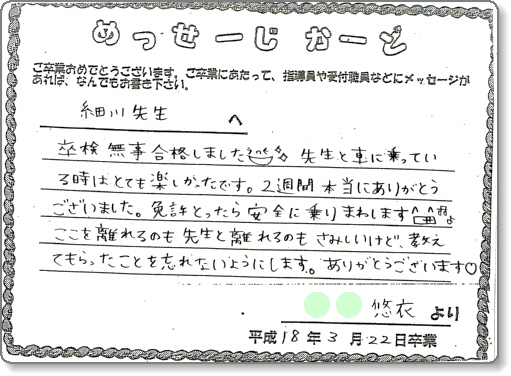 めっせーじ かーど
ご卒業おめでとうございます。ご卒業にあたって、指導員や受付職員などにメッセージが
あれば、なんでもお書き下さい。
細川先生
へ
卒検無事合格しました 先生と車に乗ってい
る時はとても楽しかったです。2週間本当にありがとう
ございました。免許とったら安全に乗りまわします
ここを離れるのも先生と離れるのもさみしいけど、教え
てもらったことを忘れないようにします。ありがとうございます♡
悠衣 より
平成18年3月22日卒業